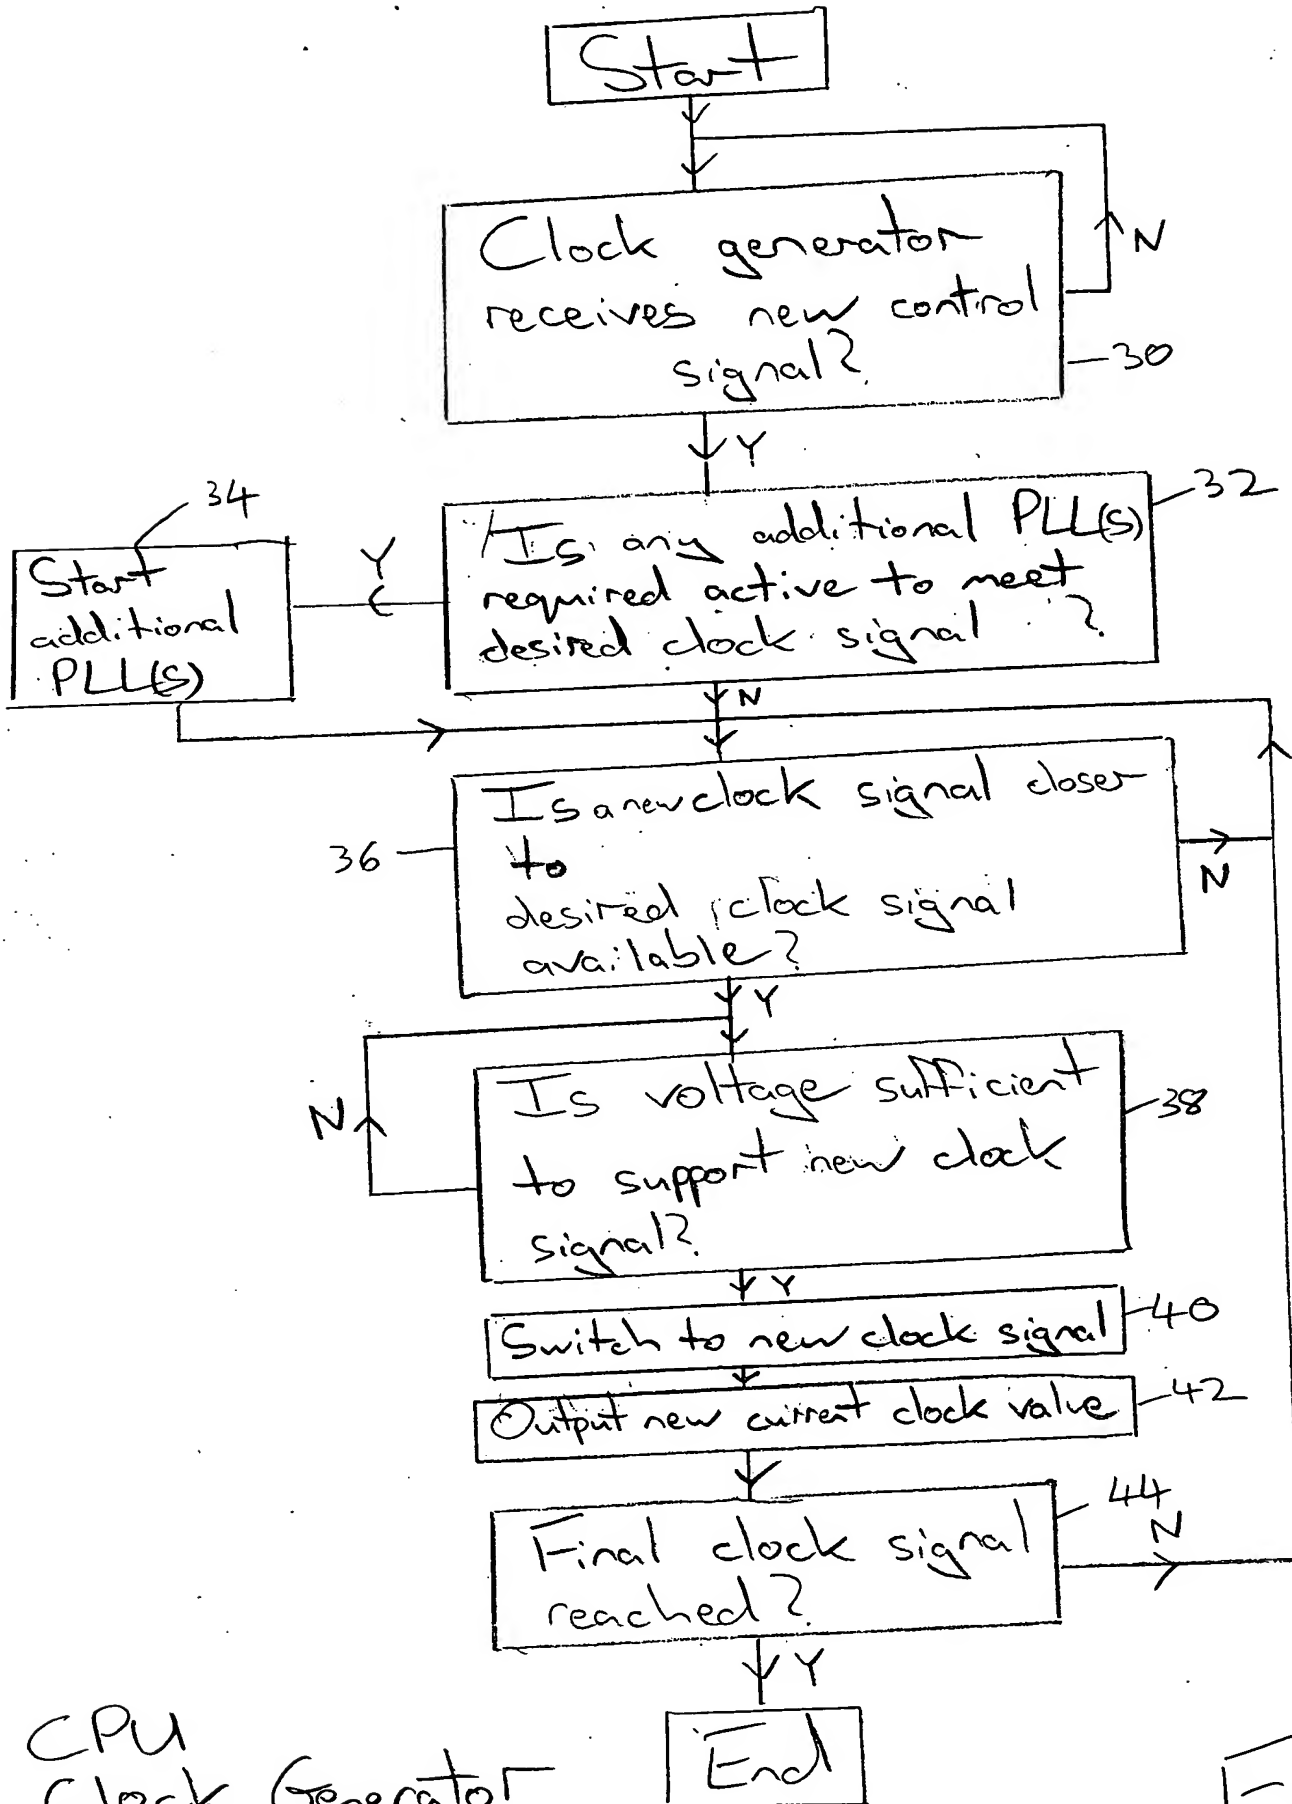 Start
N
Clock generator
receives new control
signal?
30
Y
34
32
Start
additional
PLL(s)
Y
Is any additional PLL(s)
required active to meet
desired clock signal ?
N
36
Is a new clock signal closer
to
desired clock signal
available?
N
Y
N
Is voltage sufficient
to support new clock
signal?
38
Y
Switch to new clock signal
40
Output new current clock value
42
Final clock signal
reached?
44
N
Y
End
CPU
Clock Generator